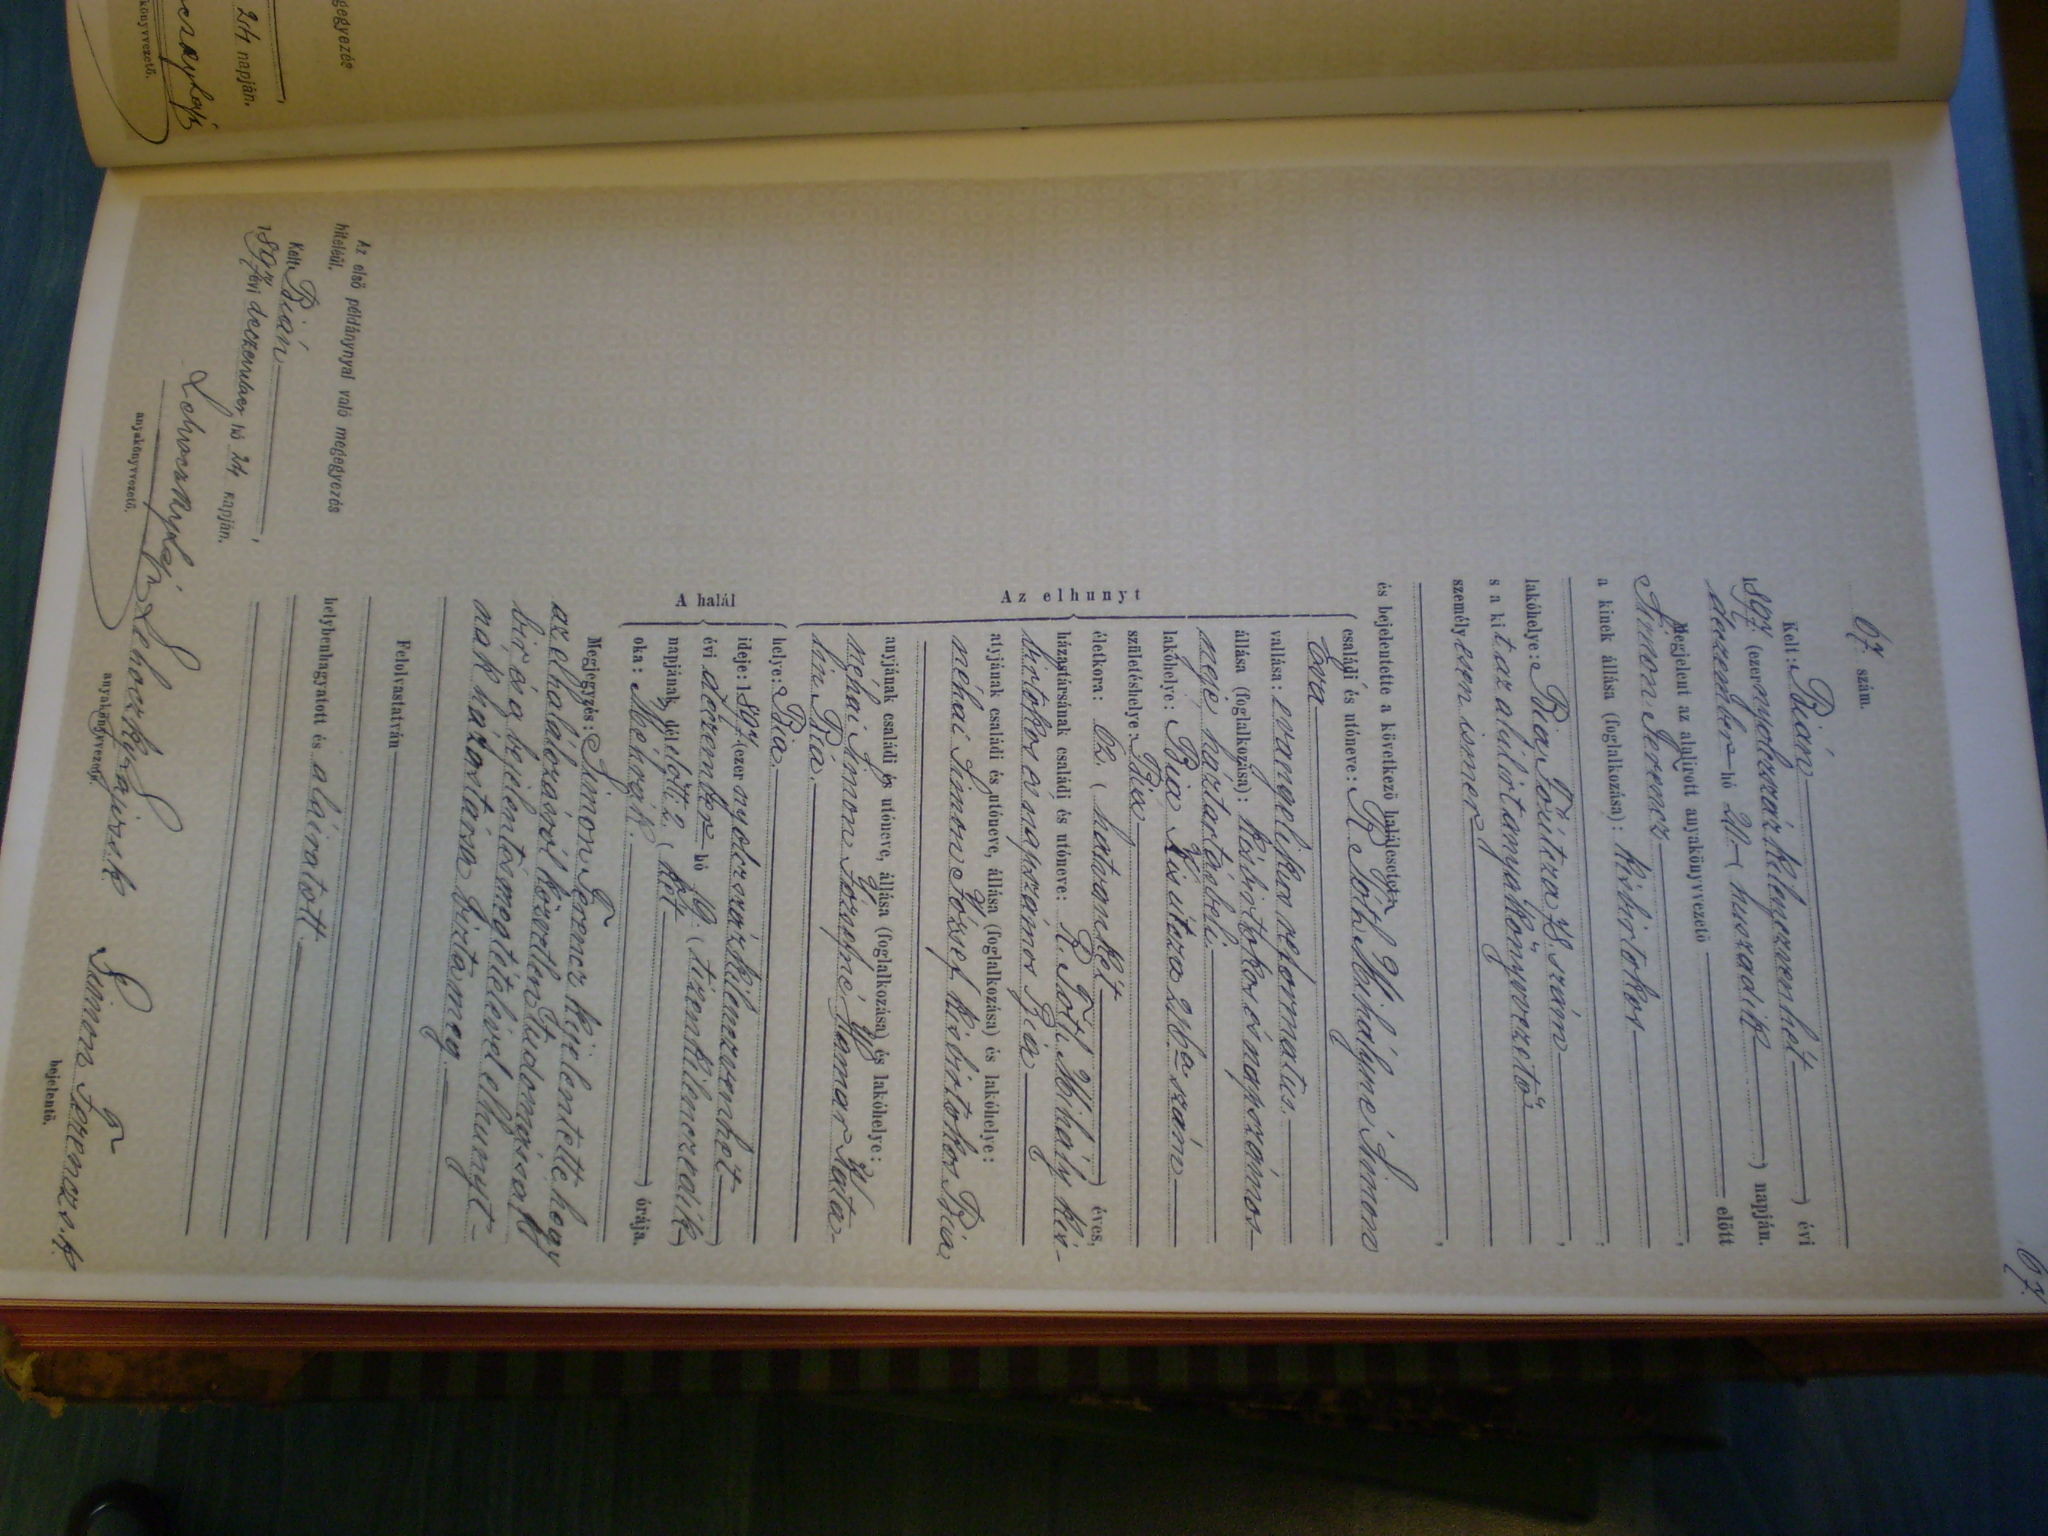 67.
67. szám.
Kelt: Bián évi
1897. (ezer nyolczszázkilenczvenhét) évi
deczember hó 20. (huszadik) napján.
Megjelent az alulirott anyakönyvvezető előtt
Simon Ferencz,
a kinek állása (foglalkozása): kisbirtokos
lakóhelye: Bia Főútcza szám,
s a kit az alúlirt anyakönyvvezető
személyesen ismer,
és bejelentette a következő halálesetet:
családi és utóneve: R. Tóth Mihályné Simon
Éva
vallása: evangelika reformatus.
állása (foglalkozása): kisbirtokos és napszámos
neje, háztartásbeli.
lakóhelye: Bia Kisútcza 216a szám
születéshelye: Bia
életkora: 62. (hatvankét) éves,
házastársának családi és utóneve: R. Tóth Mihály kis-
birtokos és napszámos Bia
atyjának családi és utóneve, állása (foglalkozása) és lakóhelye:
néhai Simon József kisbirtokos Bia
anyjának családi és utóneve, állása (foglalkozása) és lakóhelye:
néhai Simon Józsefné Kata-
lin Bia.
Az elhunyt
helye: Bia.
ideje: 1897. (ezer nyolczszázkilenczvenhét)
évi deczember hó 19. (tizenkilenczedik)
napjának délelőtti 2. (két) órája.
oka: Méhrák.
A halál
Megjegyzés: Simon Ferencz kijelentette, hogy
az elhalálozásról közvetlen tudomással
bir és a bejelentés megtételével elhunyt-
nak házastársa bizta meg.
Felolvastatván
helybenhagyatott és aláiratott.
Lehoczky Lajos s. k.
anyakönyvvezető.
Simon Ferencz s. k.
bejelentő.
Az első példánynyal való megegyezés
hiteléül.
Kelt Bián,
1897 évi deczember hó 24 napján.
Lehoczky Lajos
anyakönyvvezető.
egyezés
24 napján.
könyvvezető.